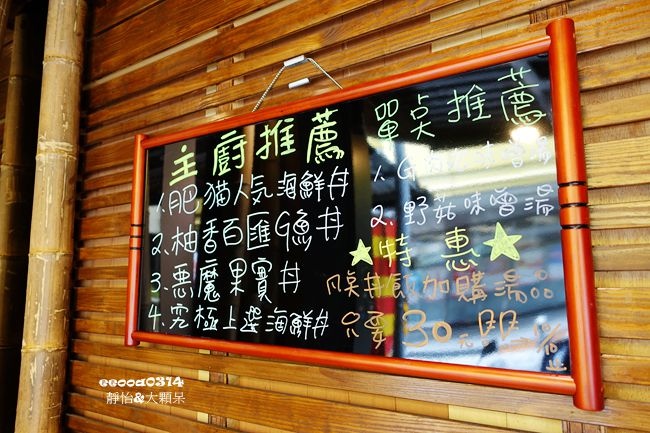 主廚推薦
1.肥貓人気海鮮丼
2.柚香百匯G魚丼
3.惡魔果實丼
4.究極上選海鮮丼
單点推薦
1.G魚味噌湯
2.野菇味噌湯
★特惠★
點丼飯加購湯品
只要30元
eeooa0314
靜怡&大顆呆